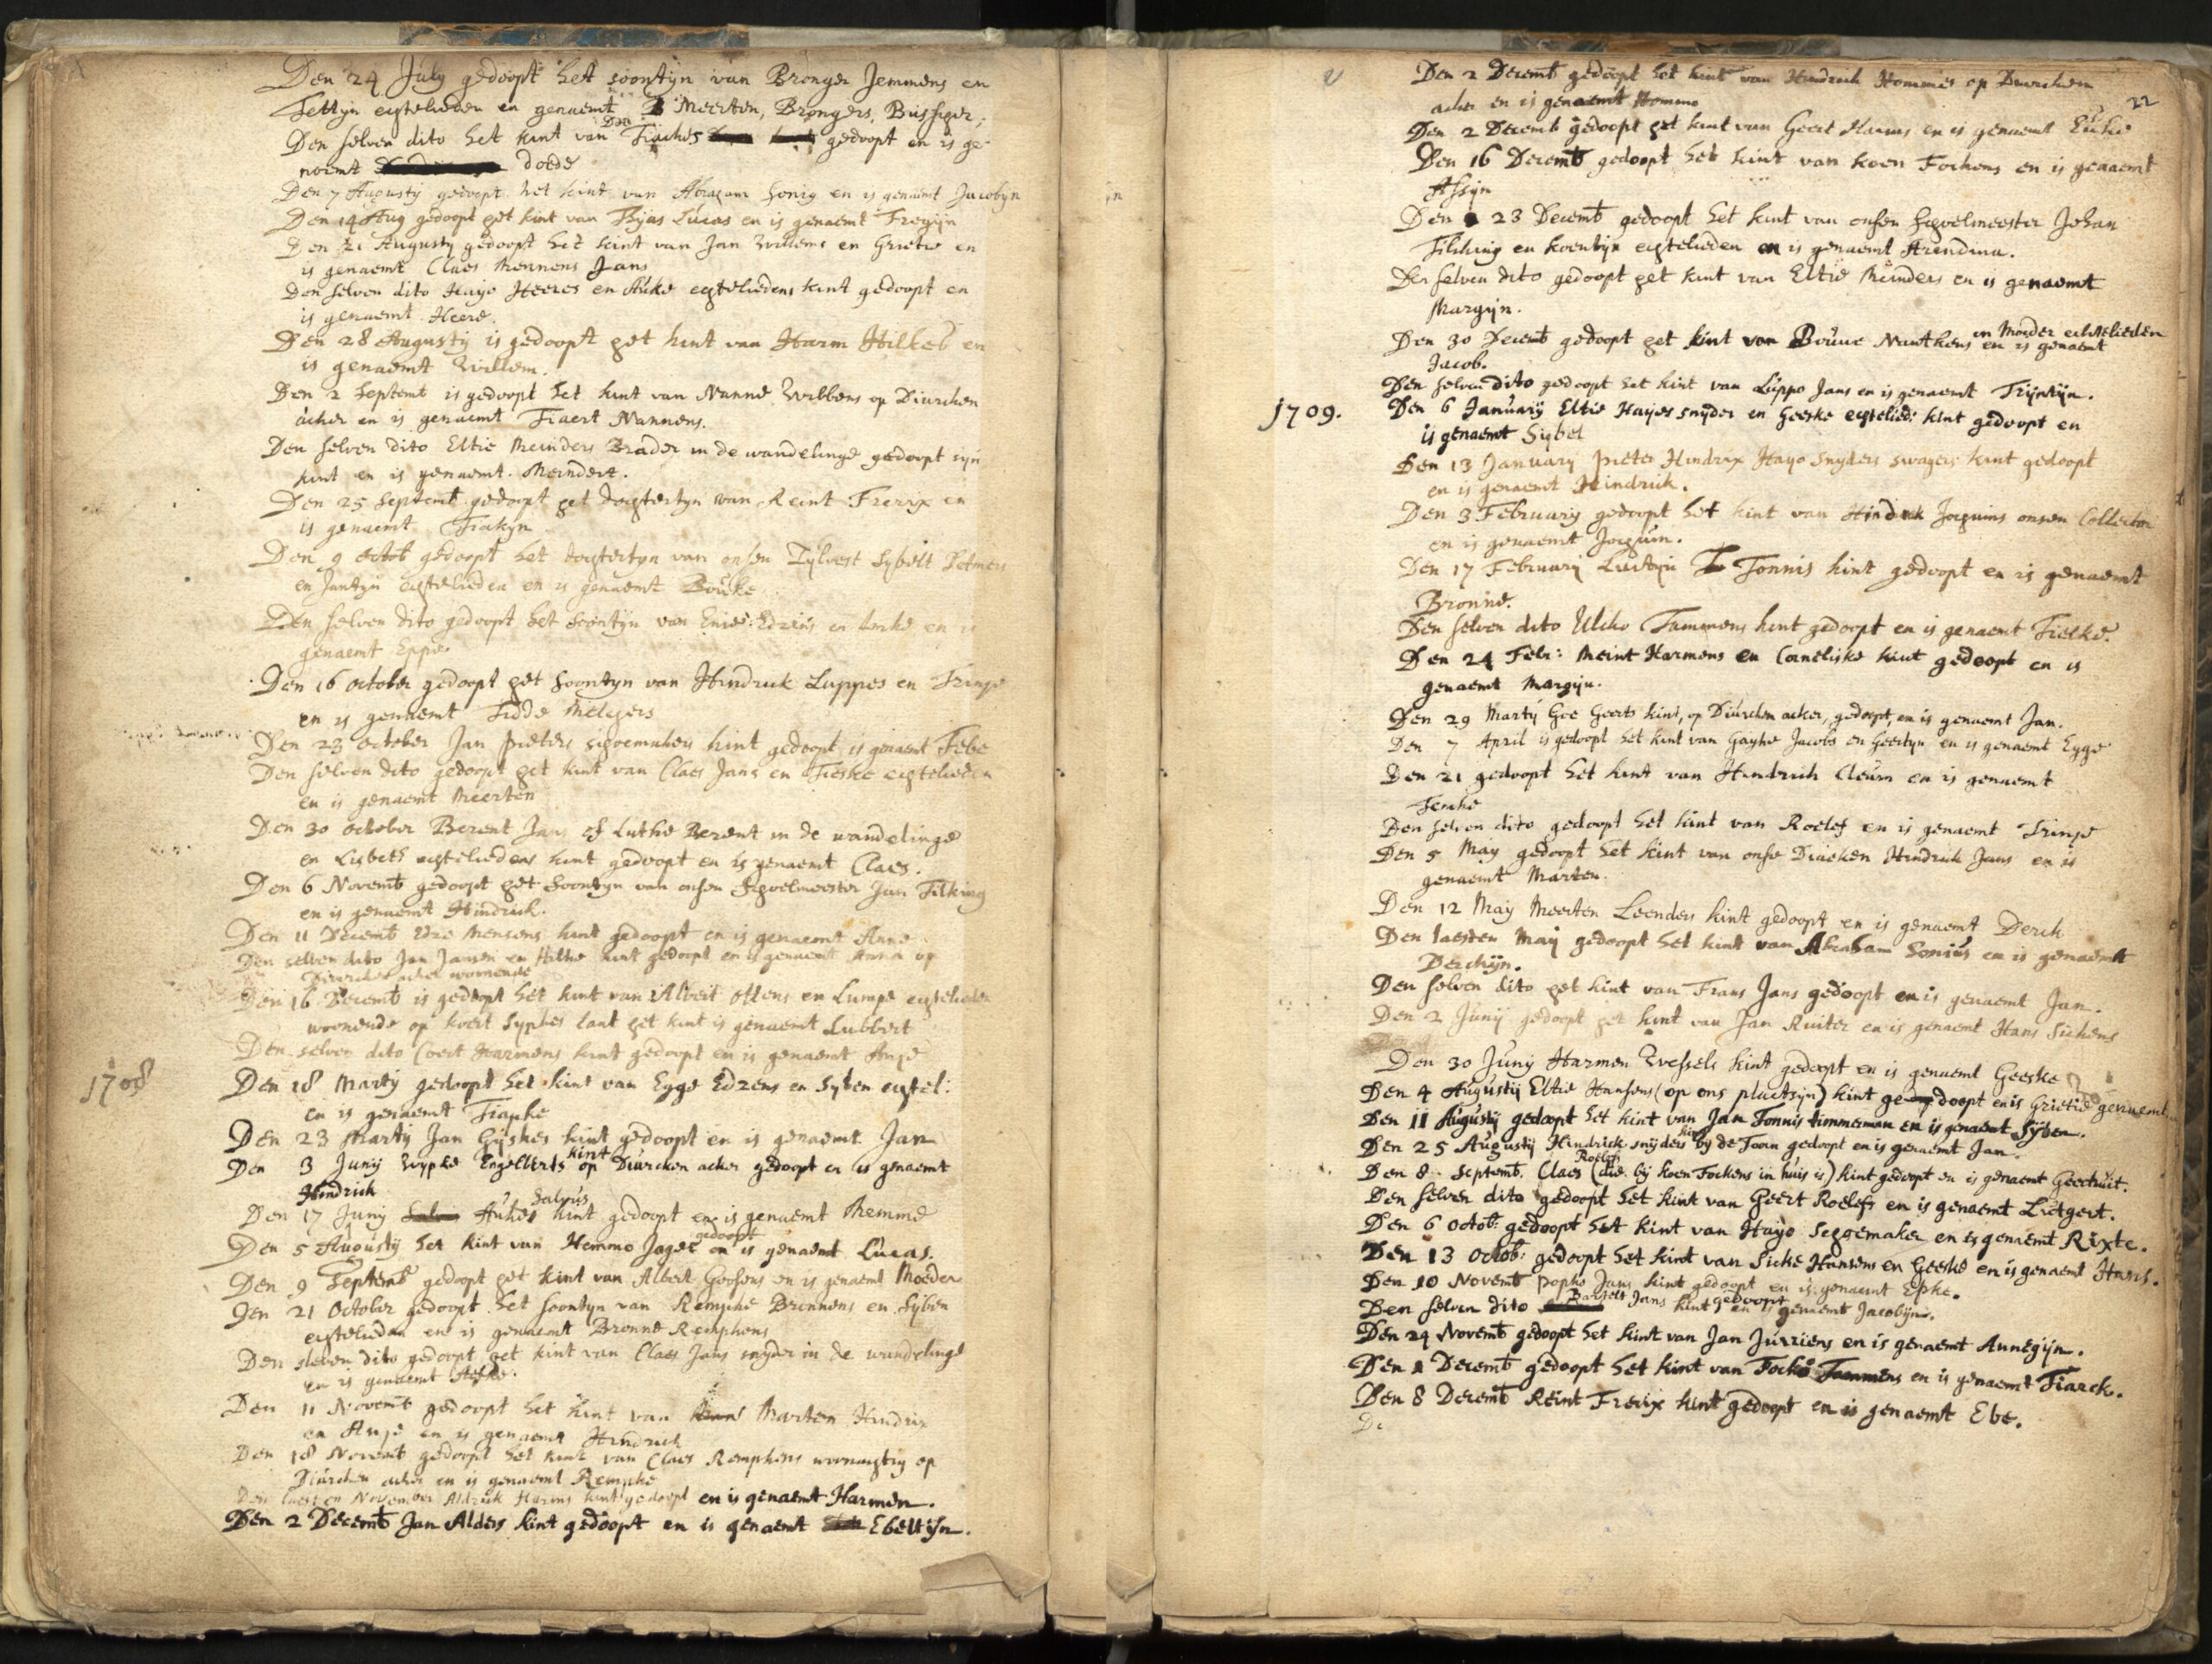 Den 24 July gedoopt het soontyn van Bronger Jemmens en
Tettyn egtelieden en genaemt Meerten, Brongers, Bussiger,
Den selven dito het kint van Tiackes gedoopt en is ge-
noemt doede
Den 7 Augusty gedoopt het kint van Abraham Sonig en is genaemt Jacobyn
Den 14 Aug gedoopt get kint van Tyas Lucas en is genaemt Fregijn
Den 21 Augusty gedoopt het kint van Jan Willems en Grietie en
is genaemt Claes Mennens Jans
Den selven dito Hayo Heeres en Auke egteliedens kint gedoopt en
is genaemt Heere.
Den 28 Augustij is gedoopt get kint van Harm Hilkes en
is genaemt Willem.
Den 2 Septemb is gedoopt het kint van Nanne Wibbens op Diurcken
acker en is genaemt Tiaert Nannens.
Den selven dito Eltie Meinders Brader in de wandelinge gedoopt syn
kint en is genaemt Meindert.
Den 25 Septemb gedoopt get dogtertyn van Reint Frerix en
is genaemt Fiakyn
Den 9 Octob gedoopt het dogtertyn van onsen Sybelt Petmers
en Jantyn egtelieden en is genaemt Bouke
Den selven dito gedoopt het soontyn van Enie Edzens en en is
genaemt Eppe
Den 16 october gedoopt get soontyn van Hindrick Luppes en Trinje
en is genaemt Fidde Melgers
Den 23 october Jan pieters sigoemakers kint gedoopt is genaemt Febe
Den selven dito gedoopt get kint van Claes Jans en Tieske egtelieden
en is genaemt Meerten
Den 30 october Berent Jans of Lutke Berent in de wandelinge
en Lisbeth egteliedens kint gedoopt en is genaemt Claes.
Den 6 Novemb gedoopt get soontyn van onsen sigoelmeester Jan Filking
en is genaemt Hindrick.
Den 11 Decemb Edze Mensens kint gedoopt en is genaemt Anne
Den selven dito Jan Jansen en Hilke kint gedoopt en is genaemt op
Diurcken acker woonende
Den 16 Decemb is gedoopt het kint van Albert Ottens en Lumpe egtelieden
woonende op Koert Sypkes lant get kint is genaemt Lubbert
Den selven dito Coert Harmens kint gedoopt en is genaemt Anje
1708
Den 18 Martij gedoopt het kint van Egge Edzens en Syben egtel:
en is genaemt Tiapke
Den 23 Martij Jan Gyskes kint gedoopt en is genaemt Jan
Den 3 Junij Wypke Engelberts kint op Diurcken acker gedoopt en is genaemt
Hindrick
Den 17 Junij Aukes Salvus kint gedoopt en is genaemt Memme
Den 5 Augustij het kint van Hemmo Jager gedoopt en is genaemt Lucas.
Den 9 Septemb gedoopt get kint van Albert Goosens en is genaemt Moeder
Den 21 October gedoopt het soontyn van Rempke Bronnens en Syben
egtelieden en is genaemt Bronne Rempkens
Den selven dito gedoopt get kint van Claes Jans snyder in de wandelinge
en is genaemt
Den 11 Novemb gedoopt het kint van Marten Hindrix
en Anje en is genaemt Hindrick
Den 18 Novemb gedoopt het kint van Claes Rempkens woonagtig op
Diurcken acker en is genaemt Rempke
Den laesten November Aldrick Harms kint gedoopt en is genaemt Harmen.
Den 2 Decemb Jan Alders kint gedoopt en is genaemt Ebeltijn.
22
Den 2 Decemb gedoopt het kint van Hindrick Hommes op Diurcken
acker en is genaemt Hommo
Den 2 Decemb gedoopt get kint van Geert Harms en is genaemt
Den 16 Decemb gedoopt het kint van Koen Fockens en is genaemt
Assijn
Den 23 Decemb gedoopt het kint van onsen sigoelmeester Johan
Filcking en Koentijn egtelieden en is genaemt Arendina.
Den selven dito gedoopt get kint van Eltie Meinders en is genaemt
Margijn.
Den 30 Decemb gedoopt get kint van Bouwe Nantkens en Moeder echtelieden en is genaemt
Jacob.
Den selven dito gedoopt het kint van Luppo Jans en is genaemt Trijntijn.
1709.
Den 6 Januarij Eltie Hayes snyder en Geeske egtelied: kint gedoopt en
is genaemt Sijbel
Den 13 January pieter Hindrix Hayo Snyders swagers kint gedoopt
en is genaemt Hindrick.
Den 3 February gedoopt het kint van Hindrick Jogums onsen Collector
en is genaemt Jogum.
Den 17 February Luitijn Tonnis kint gedoopt en is genaemt
Bronne.
Den selven dito Ulcko Tammens kint gedoopt en is genaemt Tietke.
Den 24 Febr: Meint Harmens en Corneliske kint gedoopt en is
genaemt Margijn.
Den 29 Martij Gee Geerts kint, op Diurcken acker, gedoopt, en is genaemt Jan.
Den 7 April is gedoopt het kint van Gayke Jacobs en Geertyn en is genaemt Egge
Den 21 gedoopt het kint van Hindrich Cleum en is genaemt
Fenke
Den selven dito gedoopt het kint van Roelef en is genaemt Trinje
Den 5 May gedoopt het kint van onse Diacken Hindrick Jans en is
genaemt Marten.
Den 12 May Meerten Leenders kint gedoopt en is genaemt Derck
Den laesten Maij gedoopt het kint van Abraham Sonius en is genaemt
Derckijn.
Den selven dito get kint van Frans Jans gedoopt en is genaemt Jan.
Den 2 Junij gedoopt get kint van Jan Ruiter en is genaemt Hans Sickens
Den 30 Junij Harmen Wessels kint gedoopt en is genaemt Geeske
Den 4 Augustij Eltie Hansens (op ons plaetsijn) kint gedoopt en is Grietie genaemt
Den 11 Augustij gedoopt het kint van Jan Tonnis timmerman en is genaemt Sijben.
Den 25 Augustij Hindrick snyders kint by de Toorn gedoopt en is genaemt Jan.
Den 8 Septemb. Claes Roelefs (die bij Koen Fockens in huis is) kint gedoopt en is genaemt Geertruit.
Den selven dito gedoopt het kint van Geert Roelefs en is genaemt Lutgert.
Den 6 octob: gedoopt het kint van Hayo Seggemaker en is genaemt Rixte.
Den 13 octob: gedoopt het kint van Sicke Hansens en Geeske en is genaemt Hans.
Den 10 Novemb popke Jans kint gedoopt en is genaemt Epke.
Den selven dito Barselt Jans kint gedoopt en is genaemt Jacobijn.
Den 24 Novemb gedoopt het kint van Jan Jurriens en is genaemt Annegijn.
Den 1 Decemb gedoopt het kint van Focke Tammens en is genaemt Tiarck.
Den 8 Decemb Reint Frerix kint gedoopt en is genaemt Ebe.
De